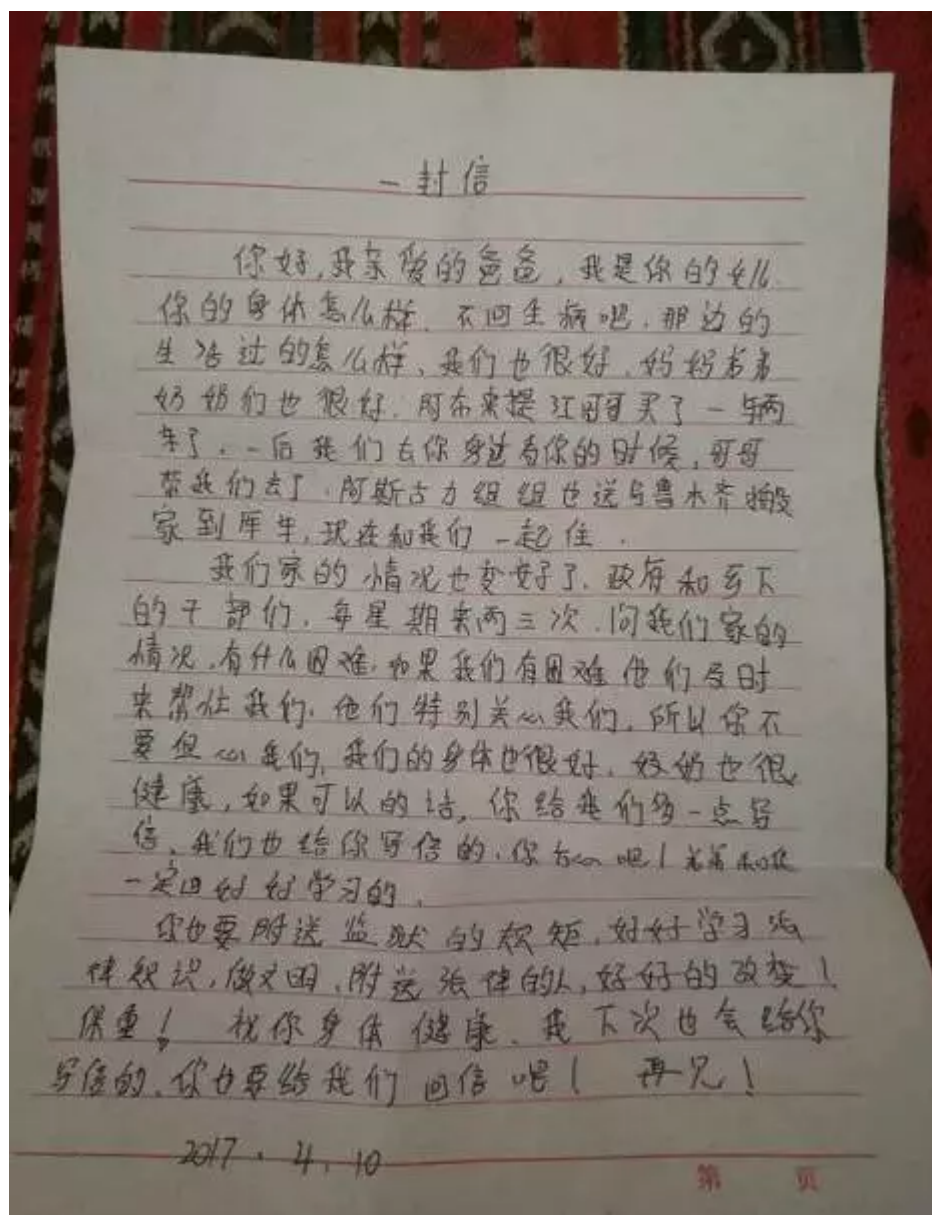 一封信
你好,我亲爱的爸爸,我是你的女儿.
你的身体怎么样、不回生病吧、那边的
生活过的怎么样、我们也很好、妈妈弟弟
奶奶们也很好、阿布来提江哥哥买了一辆
车了、一后我们去你身边看你的时候,哥哥
带我们去了、阿斯古力组组也送乌鲁木齐搬
家到库车,现在和我们一起住.
我们家的情况也变好了、政府和乡下
的干部们、每星期来两三次、问我们家的
情况,有什么困难、如果我们有困难他们及时
来帮忙我们、他们特别关心我们、所以你不
要但心我们、我们的身体也很好、奶奶也很
健康,如果可以的话,你给我们多一点写
信、我们也给你写信的、你方心吧!弟弟和我
一定回好好学习的、
你也要附送监狱的规矩、好好学习法
律织识,做文明、附送法律的人,好好的改变!
保重!祝你身体健康、我下次也会给你
写信的、你也要给我们回信吧!再见!
2017.4.10
第 页